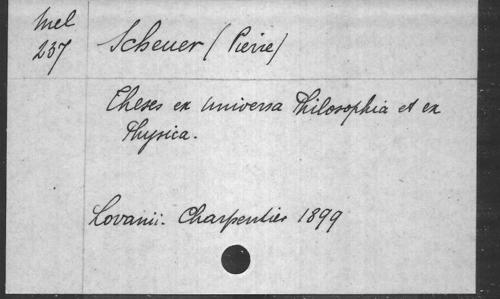 Mel
237
Scheuer (Pierre)
Theses ex Universa Philosophia et ex
Physica.
Lovanii. Charpentier 1899